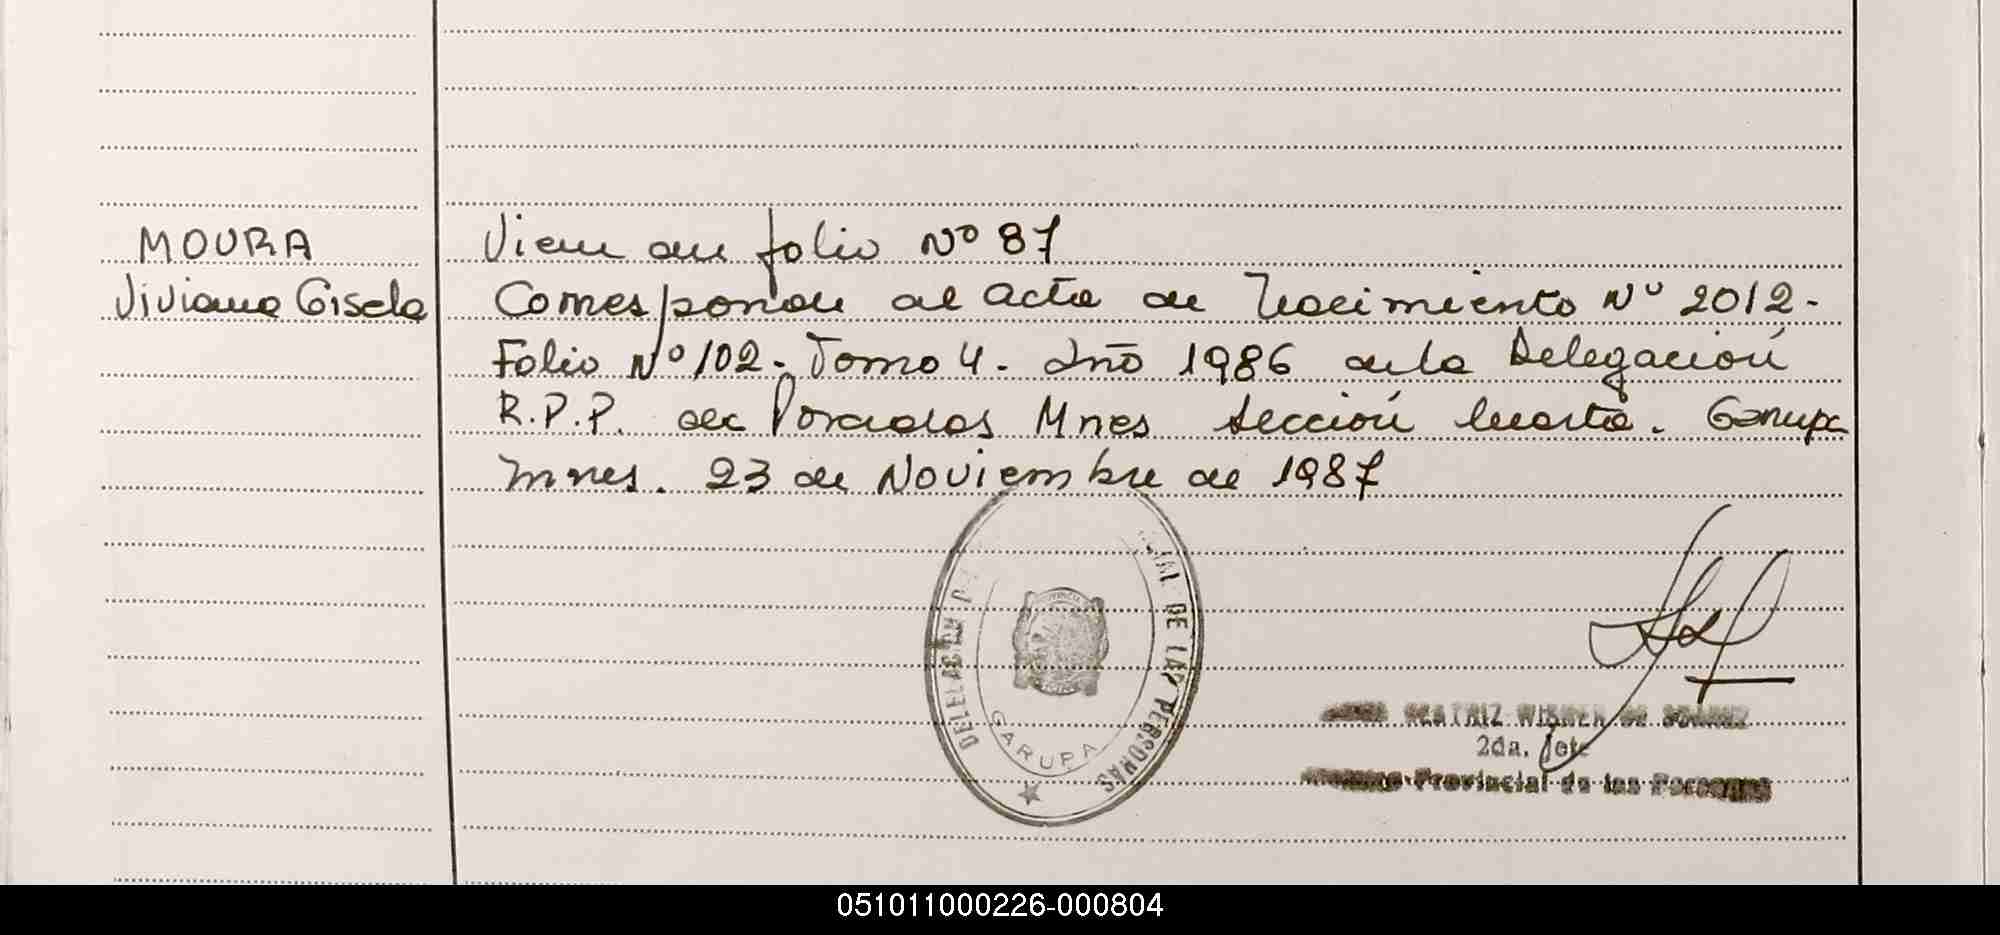 MOURA
Viviana Gisela
Viene de folio Nº 87
Corresponde al acta de Nacimiento Nº 2012-
Folio Nº 102- Tomo 4. Año 1986 de la Delegación
R.P.P. de Posadas Mnes Sección Cuarta. Garupa
Mnes. 23 de Noviembre de 1987
DELEGACION DE LAS PERSONAS
GARUPA
PROVINCIA
BEATRIZ WISNER DE
2da. Jefe
Provincial de las Personas
051011000226-000804